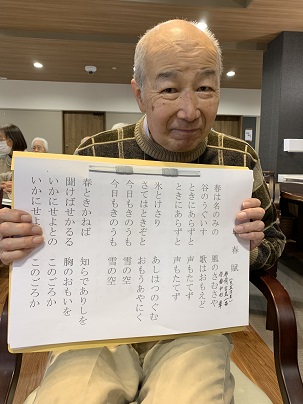 春賦
春は名のみの　風のさむさや
谷のうぐいす　歌はおもえど
ときにあらずと　声もたてず
ときにあらずと　声もたてず
氷とけさり　あしはつのぐむ
さてはときぞと　おもうあやにく
今日もきのうも　雪の空
今日もきのうも　雪の空
春ときかねば　知らでありしを
聞けばせかるる　胸のおもいを
いかにせよとの　このごろか
いかにせよとの　このごろか